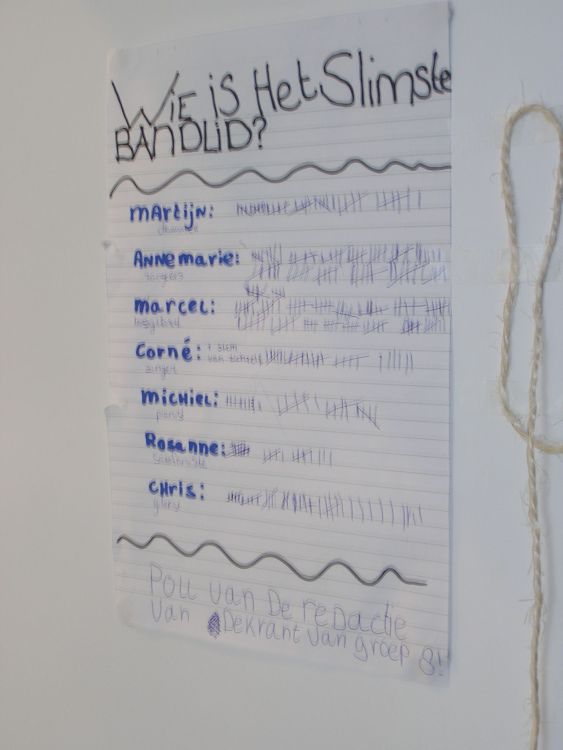 Wie is Het Slimste
BANDLID?
Martijn:
Annemarie:
zangers
marcel:
Corné: 1 stem
zanger
michiel:
pianist
Rosanne:
CHris:
Poll van De redactie
van DeKrant van groep 8!